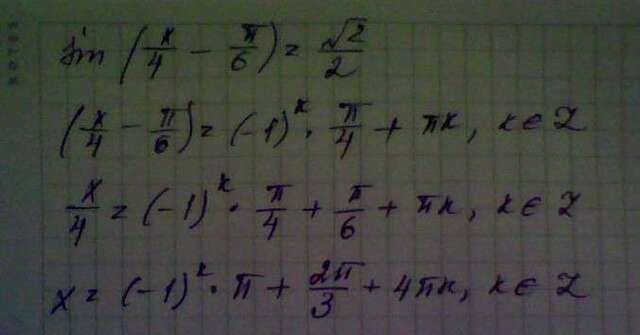 sin (x/4 − π/6) = √2/2
(x/4 − π/6) = (−1)^k · π/4 + πk, k ∈ Z
x/4 = (−1)^k · π/4 + π/6 + πk, k ∈ Z
x = (−1)^k · π + 2π/3 + 4πk, k ∈ Z